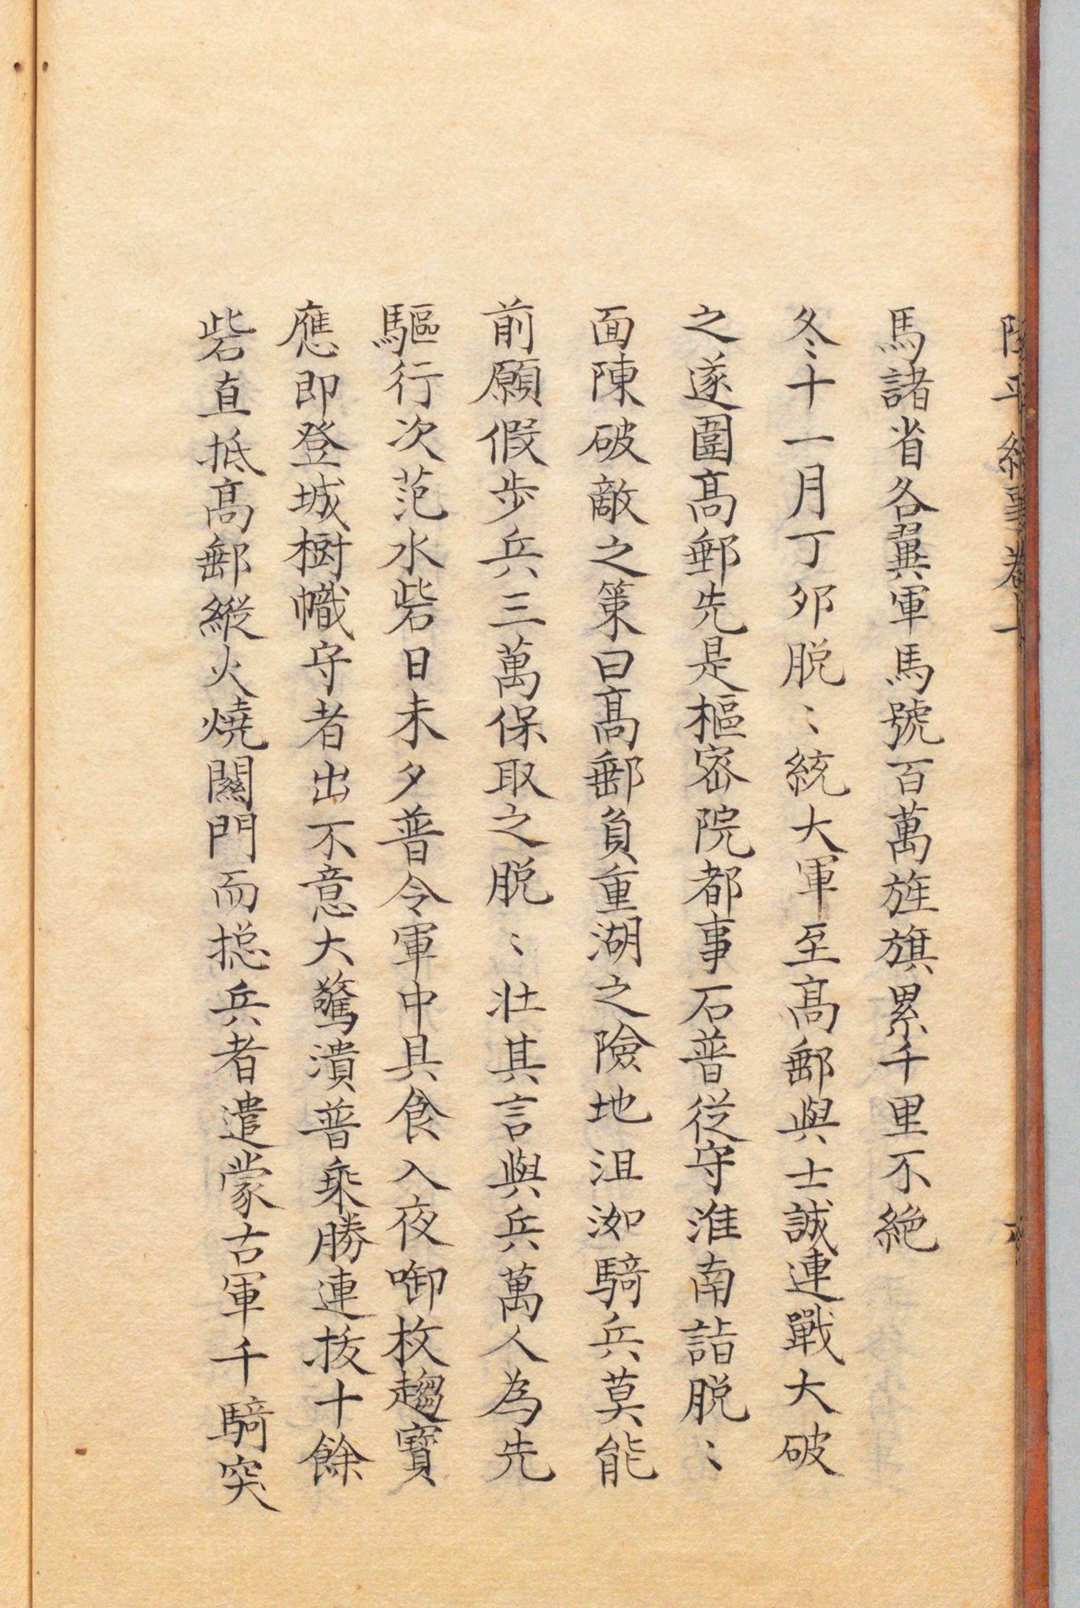 馬諸省各翼軍馬號百萬旌旗累千里不絶
冬十一月丁卯脱〻統大軍至髙郵與士誠連戰大破
之遂圍髙郵先是樞宻院都事石普從守淮南詣脱〻
面陳破敵之策曰髙郵負重湖之險地沮洳騎兵莫能
前願假歩兵三萬保取之脱〻壮其言與兵萬人為先
驅行次范水砦日未夕普令軍中具食入夜啣枚趨寳
應即登城樹幟守者出不意大驚潰普乗勝連拔十餘
砦直抵髙郵縱火燒闗門而捴兵者遣蒙古軍千騎突